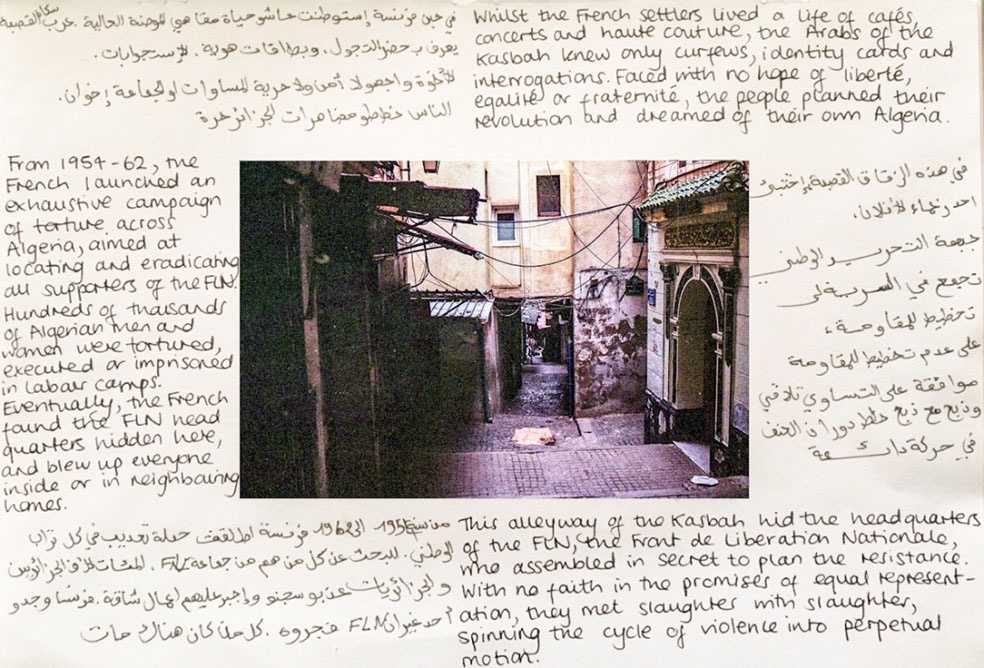 في حين فرنسة إستوطنت عاشو حياة مقاهي الموضة الحالية. عرب سكان القصبة
يعرف ب حضر التجول، وبطاقات هوية، لإستجوابات.
واجهو لا أمن ولا حرية المساوات لو الجماعة إخوان.
الناس خططو مضاهرات الجزائر حرة
Whilst the French settlers lived a life of cafés,
concerts and haute couture, the Arabs of the
Kasbah knew only curfews, identity cards and
interrogations. Faced with no hope of liberté,
egalité or fraternité, the people planned their
revolution and dreamed of their own Algeria.
From 1954-62, the
French launched an
exhaustive campaign
of torture across
Algeria, aimed at
locating and eradicating
all supporters of the FLN.
Hundreds of thousands
of Algerian men and
women were tortured,
executed or imprisoned
in labour camps.
Eventually, the French
found the FLN head
quarters hidden here,
and blew up everyone
inside or in neighbouring
homes.
في هذه الزقاق القصبة إختبئ
احد زعماء لأفلان.
جبهة التحرير الوطني
تجمع في السرية لى
تخطيط للمقاومة
على عدم تخطيط للمقاومة
موافقة على التساوي تلاقي
وذبح مع ذبح خطط دوران العنف
في حركة دائمة
من سنة 1954 الى 1962 فرنسة اطلقت حملة تعذيب في كل تراب
الوطني. للبحث عن كل من هم من جماعة FLN. المئات لألاف الجزائريين
و الجزائريات عذبو سجنو وإجبر عليهم لعمال شاقة. فرنسا وجدو
أحد غيران FLN فجروه. كل من كان هناك مات
This alleyway of the Kasbah hid the headquarters
of the FLN, the Front de Liberation Nationale,
who assembled in secret to plan the resistance.
With no faith in the promises of equal represent-
ation, they met slaughter with slaughter,
spinning the cycle of violence into perpetual
motion.